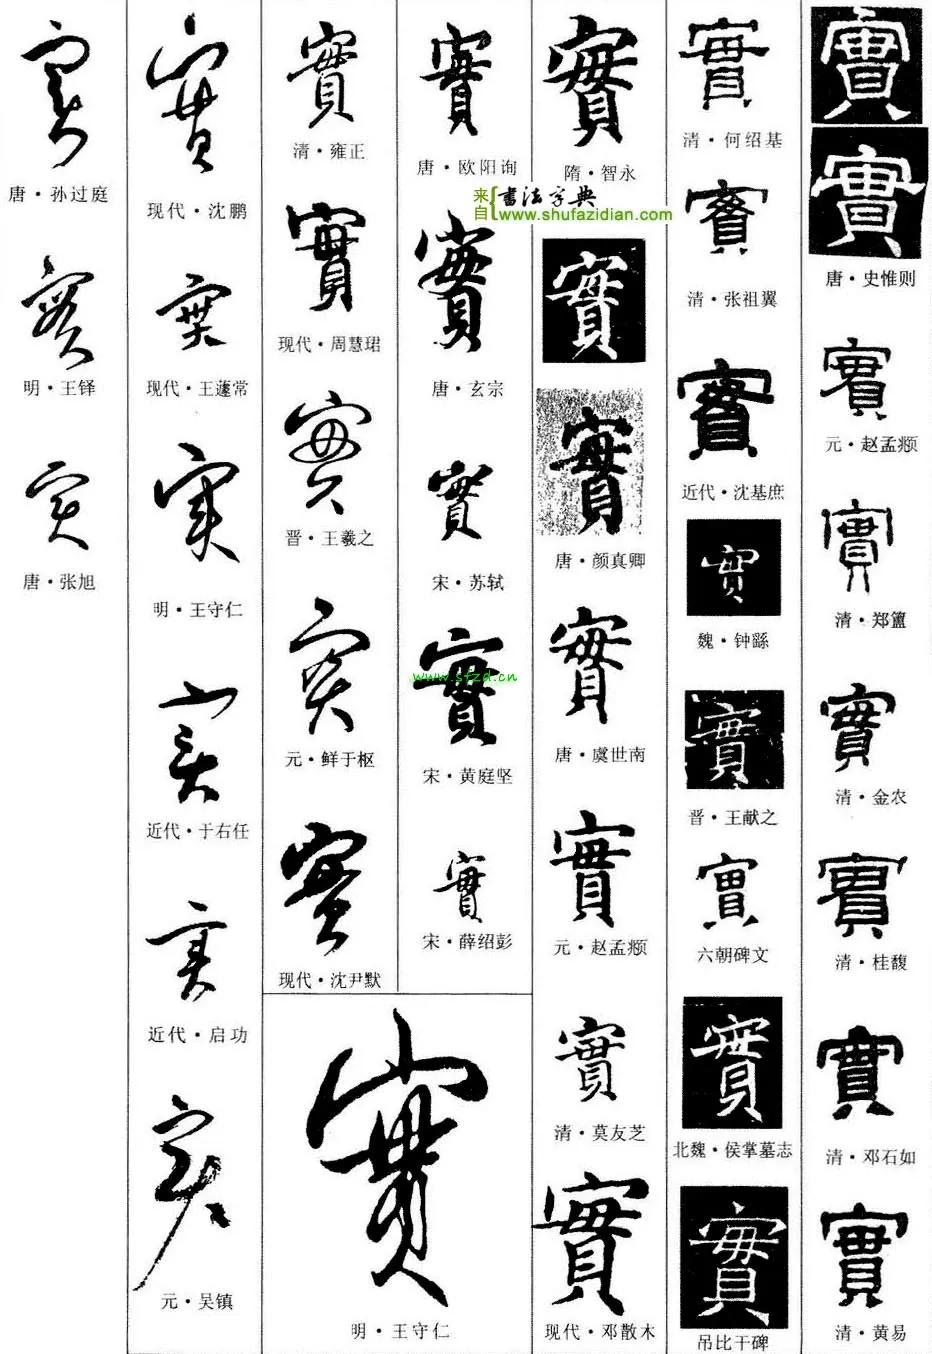 實
實
唐·史惟则
實
元·赵孟頫
實
清·郑簠
實
清·金农
實
清·桂馥
實
清·邓石如
實
清·黄易
實
清·何绍基
實
清·张祖翼
實
近代·沈基庶
實
魏·钟繇
實
晋·王献之
實
六朝碑文
實
北魏·侯掌墓志
實
吊比干碑
實
隋·智永
来自{书法字典
www.shufazidian.com
實
實
唐·颜真卿
實
唐·虞世南
實
元·赵孟頫
實
清·莫友芝
實
现代·邓散木
實
唐·欧阳询
實
唐·玄宗
實
宋·苏轼
實
www.sfzd.cn
宋·黄庭坚
實
宋·薛绍彭
實
清·雍正
實
现代·周慧珺
實
晋·王羲之
實
元·鲜于枢
實
现代·沈尹默
實
明·王守仁
實
现代·沈鹏
實
现代·王蘧常
實
明·王守仁
實
近代·于右任
實
近代·启功
實
元·吴镇
實
唐·孙过庭
實
明·王铎
實
唐·张旭